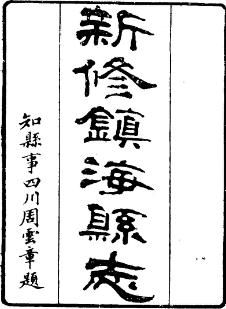 新修鎮海縣志
知縣事四川周雲章題